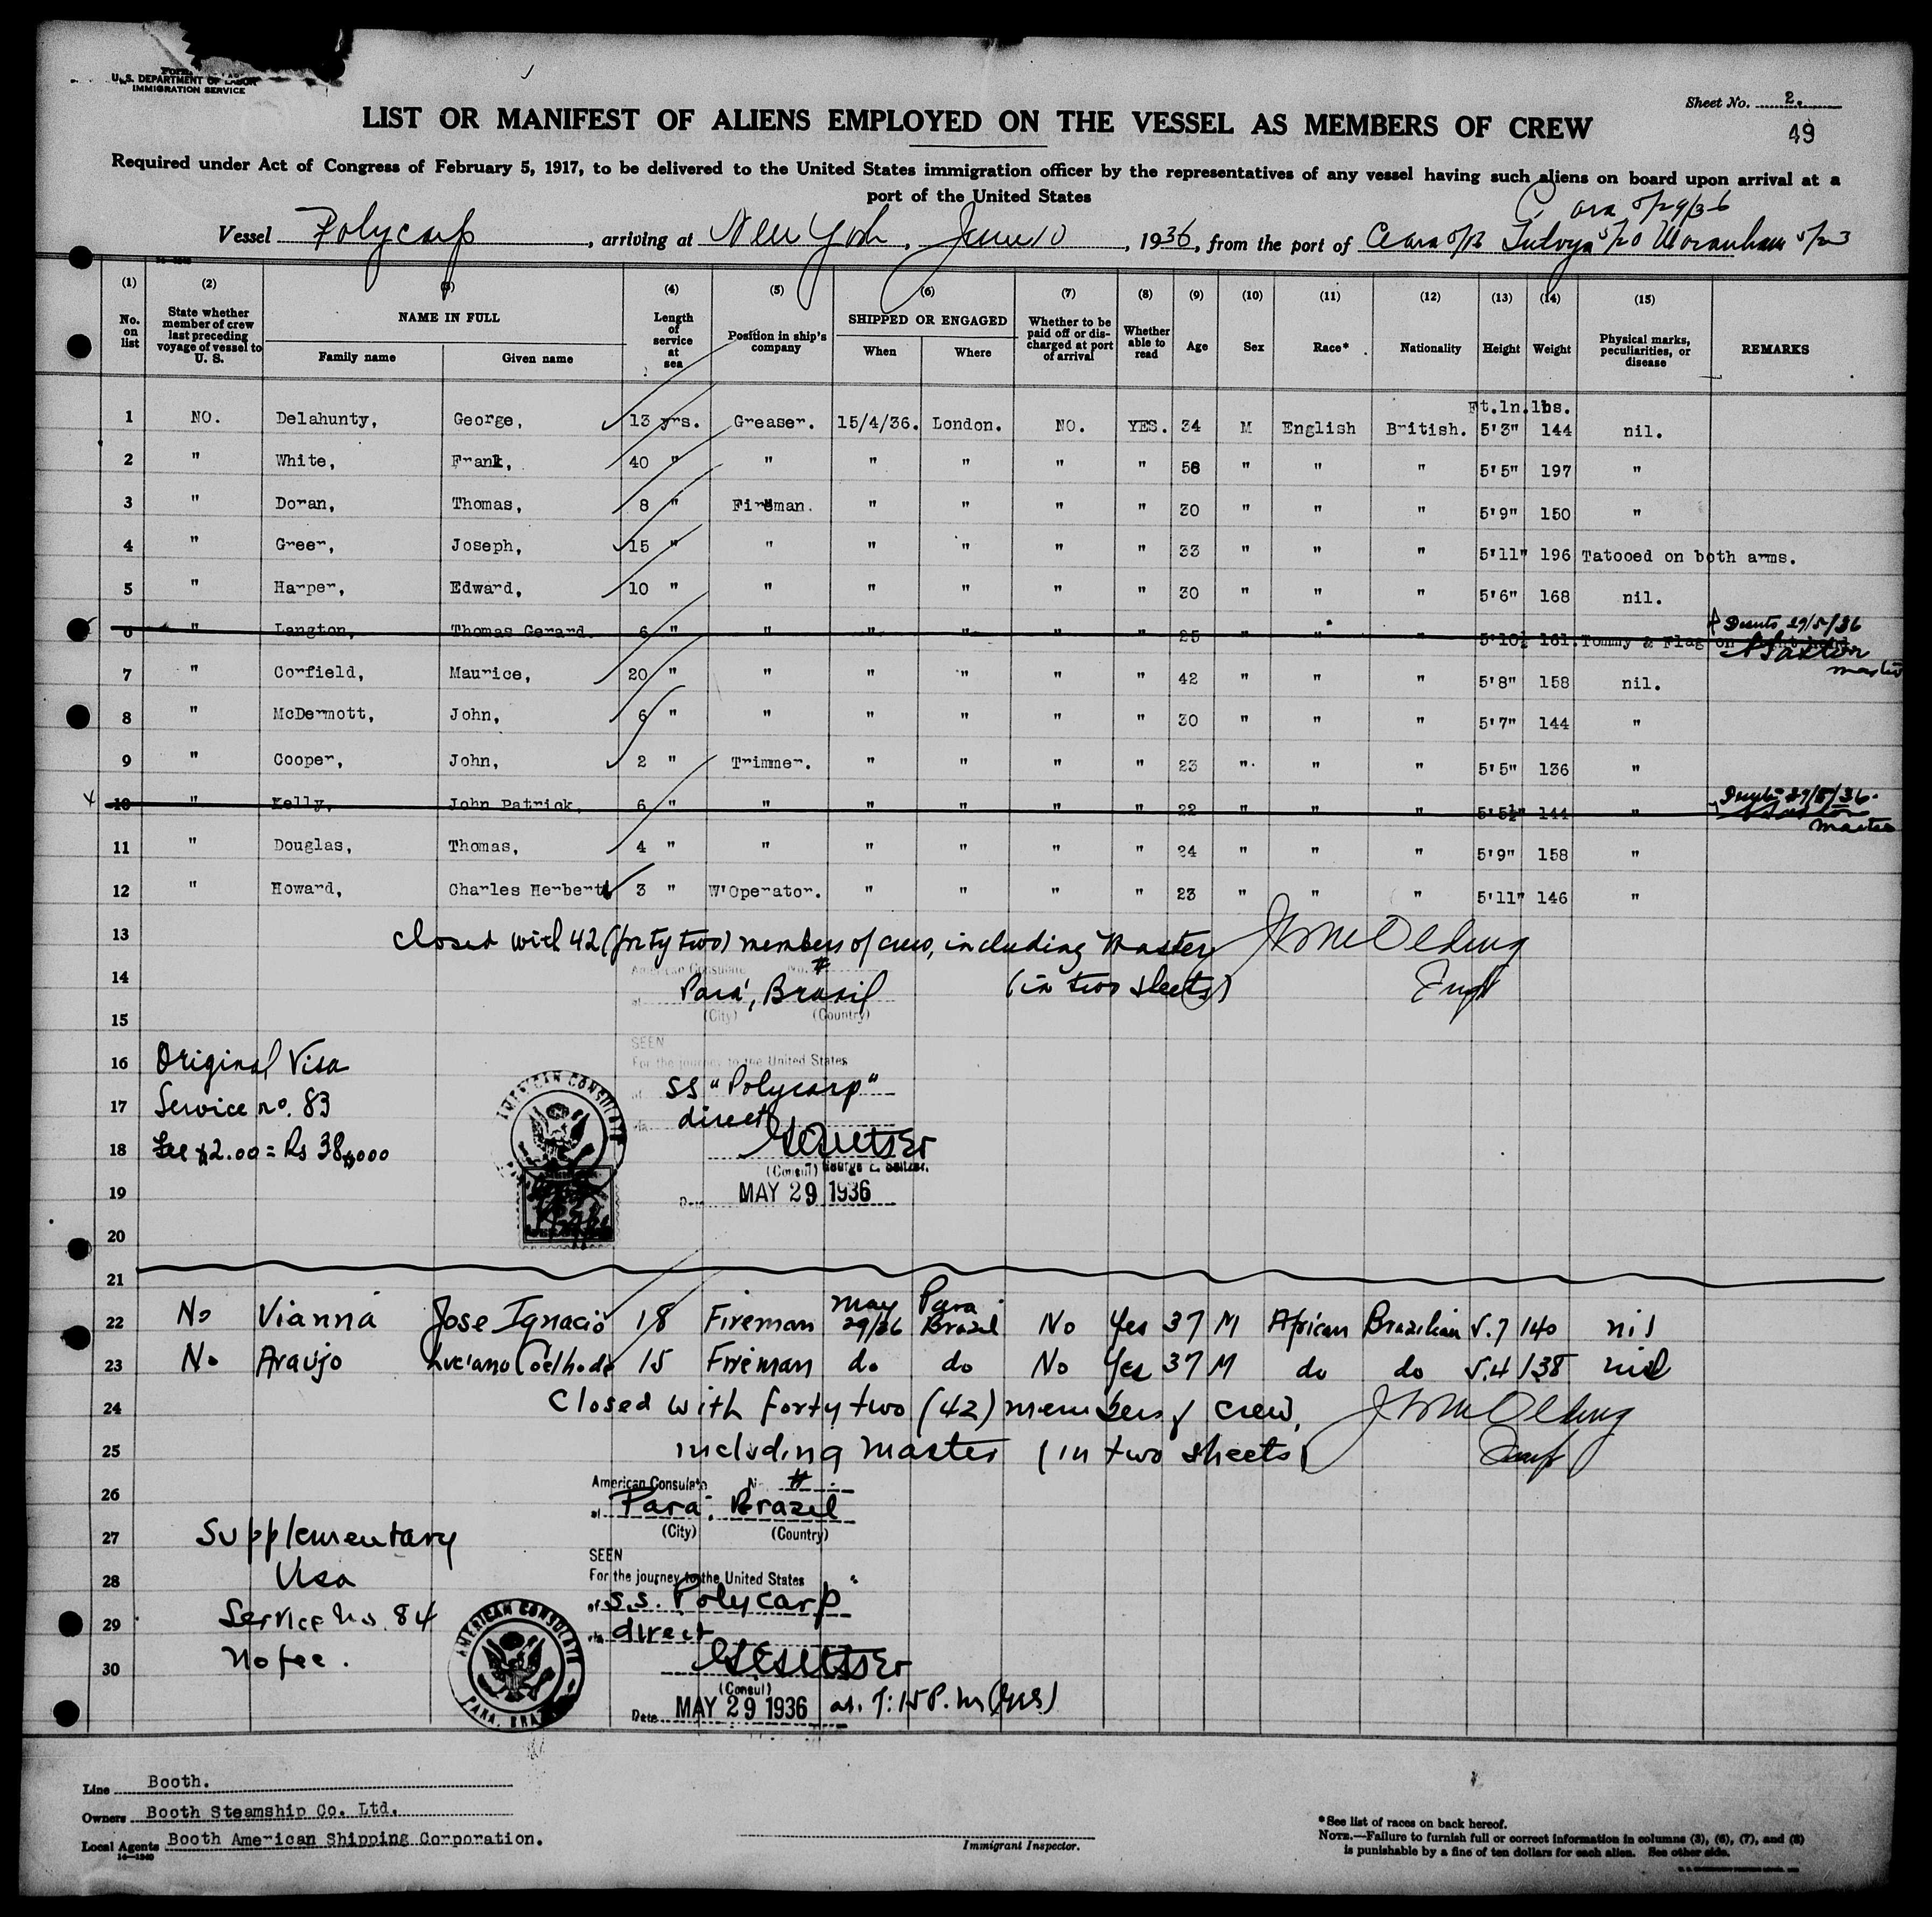 U.S. DEPARTMENT OF LABOR
IMMIGRATION SERVICE
Sheet No. 2.
49
LIST OR MANIFEST OF ALIENS EMPLOYED ON THE VESSEL AS MEMBERS OF CREW
Required under Act of Congress of February 5, 1917, to be delivered to the United States immigration officer by the representatives of any vessel having such aliens on board upon arrival at a
port of the United States
5/29/36
Vessel Polycarp, arriving at New York, June 10, 1936, from the port of Ceara 5/18 5/20 Maranham 5/23
(1) (2) (3) (4) (5) (6) (7) (8) (9) (10) (11) (12) (13) (14) (15)
No. on list
State whether member of crew last preceding voyage of vessel to U. S.
NAME IN FULL
Family name Given name
Length of service at sea
Position in ship's company
SHIPPED OR ENGAGED
When Where
Whether to be paid off or discharged at port of arrival
Whether able to read
Age Sex Race* Nationality Height Weight
Physical marks, peculiarities, or disease
REMARKS
Ft.In.lbs.
1 NO. Delahunty, George, 13 yrs. Greaser. 15/4/36. London. NO. YES. 34 M English British. 5'3" 144 nil.
2 " White, Frank, 40 " " " " " " 58 " " " 5'5" 197 "
3 " Doran, Thomas, 8 " Fireman. " " " " 30 " " " 5'9" 150 "
4 " Greer, Joseph, 15 " " " " " " 33 " " " 5'11" 196 Tatooed on both arms.
5 " Harper, Edward, 10 " " " " " " 30 " " " 5'6" 168 nil.
6 " Langton, Thomas Gerard. 6 " " " " " " 25 " " " 5'10½ 161. Tommy & Flag on 29/5/36
master
7 " Corfield, Maurice, 20 " " " " " " 42 " " " 5'8" 158 nil.
8 " McDermott, John, 6 " " " " " " 30 " " " 5'7" 144 "
9 " Cooper, John, 2 " Trimmer. " " " " 23 " " " 5'5" 136 "
10 " Kelly, John Patrick, 6 " " " " " " 22 " " " 5'5½" 144 " 29/5/36.
master
11 " Douglas, Thomas, 4 " " " " " " 24 " " " 5'9" 158 "
12 " Howard, Charles Herbert 3 " W'Operator. " " " " 23 " " " 5'11" 146 "
13 Closed with 42 (forty two) members of crew, including Master
14 American Consulate
at Pará, Brasil (in two sheets)
15 (City) (Country)
SEEN
16 Original Visa
For the journey to the United States
of SS "Polycarp"
17 Service no. 83
via direct
18 Fee $2.00 = Rs 38$000
AMERICAN CONSULATE
(Consul) George E. Seltzer.
19 Date MAY 29 1936
20
21
22 No Vianna Jose Ignacio 18 Fireman May 29/36 Para Brazil No Yes 37 M African Brazilian 5.7 140 nil
23 No Araujo Luciano Coelho de 15 Fireman do do No Yes 37 M do do 5.4 138 nil
24 Closed with forty two (42) members of crew,
25 including master (in two sheets)
26 American Consulate No.
at Para, Brazil
(City) (Country)
27 Supplementary
SEEN
28 Visa
For the journey to the United States
of S.S. Polycarp"
29 Service No. 84
via direct
30 No fee.
AMERICAN CONSULATE
PARA, BRAZIL
(Consul)
Date MAY 29 1936 at 7:15 P.M
Line Booth.
Owners Booth Steamship Co. Ltd.
Local Agents Booth American Shipping Corporation.
14—1240
Immigrant Inspector.
*See list of races on back hereof.
NOTE.—Failure to furnish full or correct information in columns (3), (6), (7), and (8)
is punishable by a fine of ten dollars for each alien. See other side.